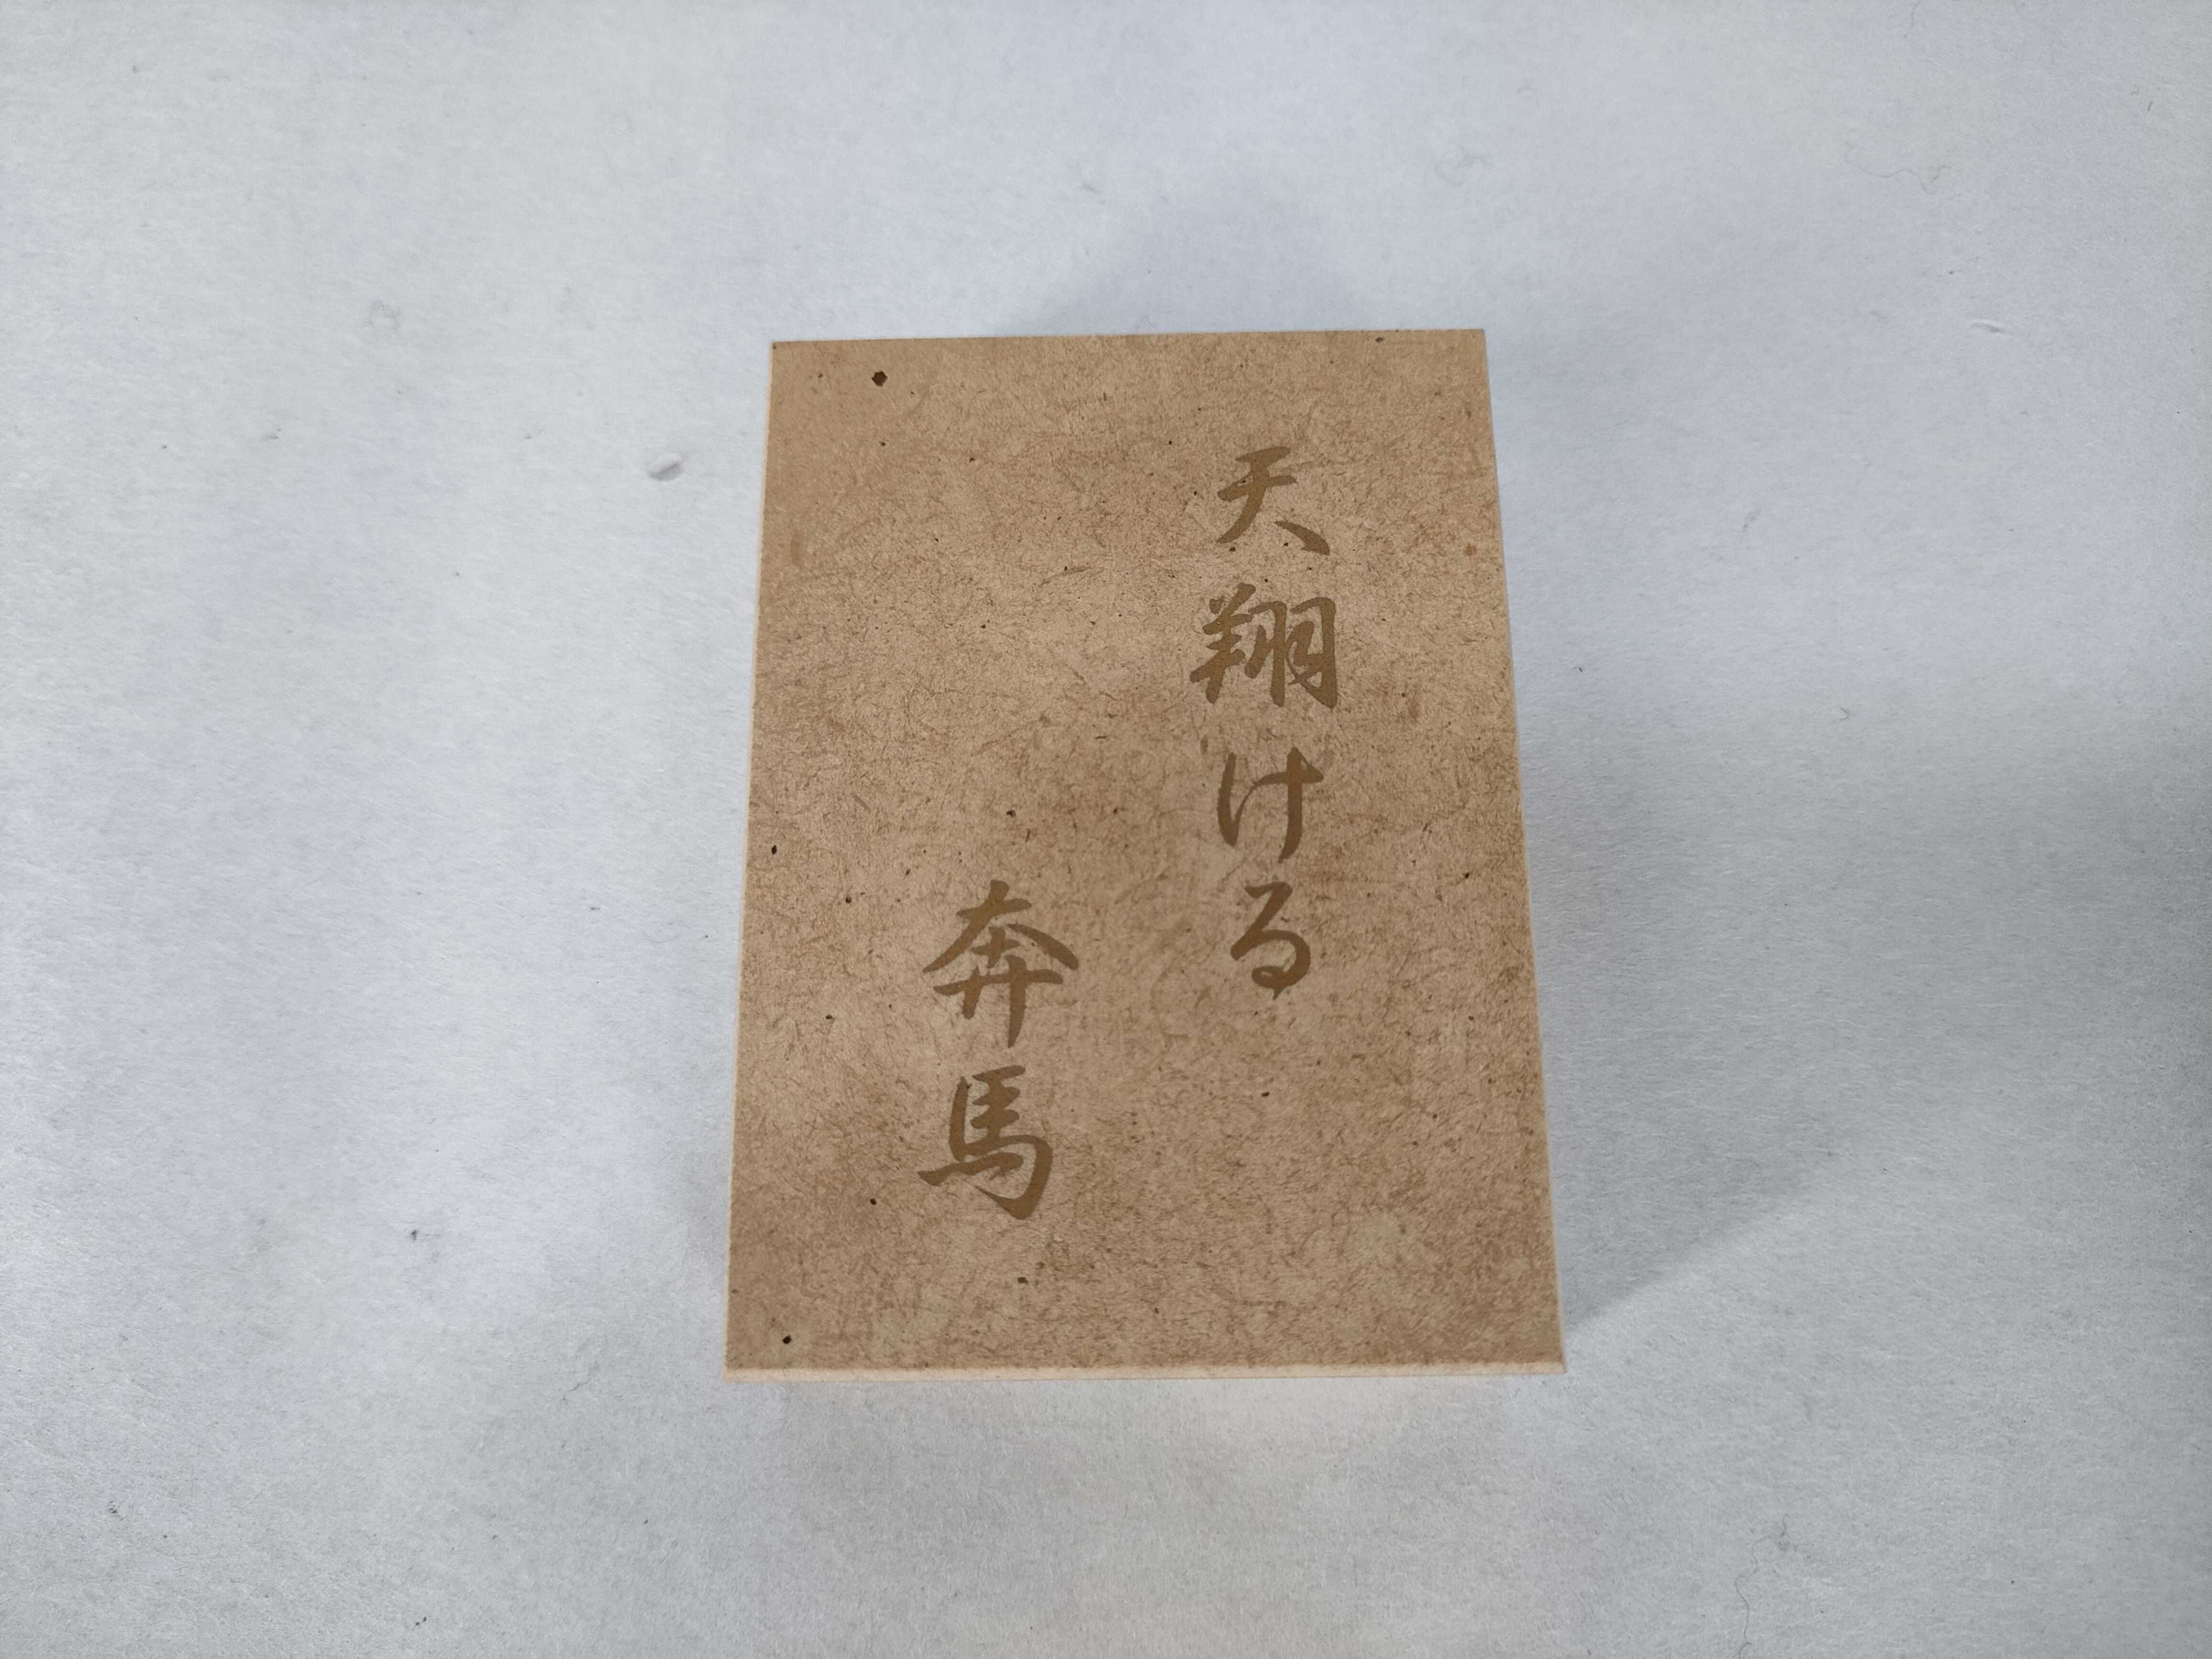 天翔ける
奔馬